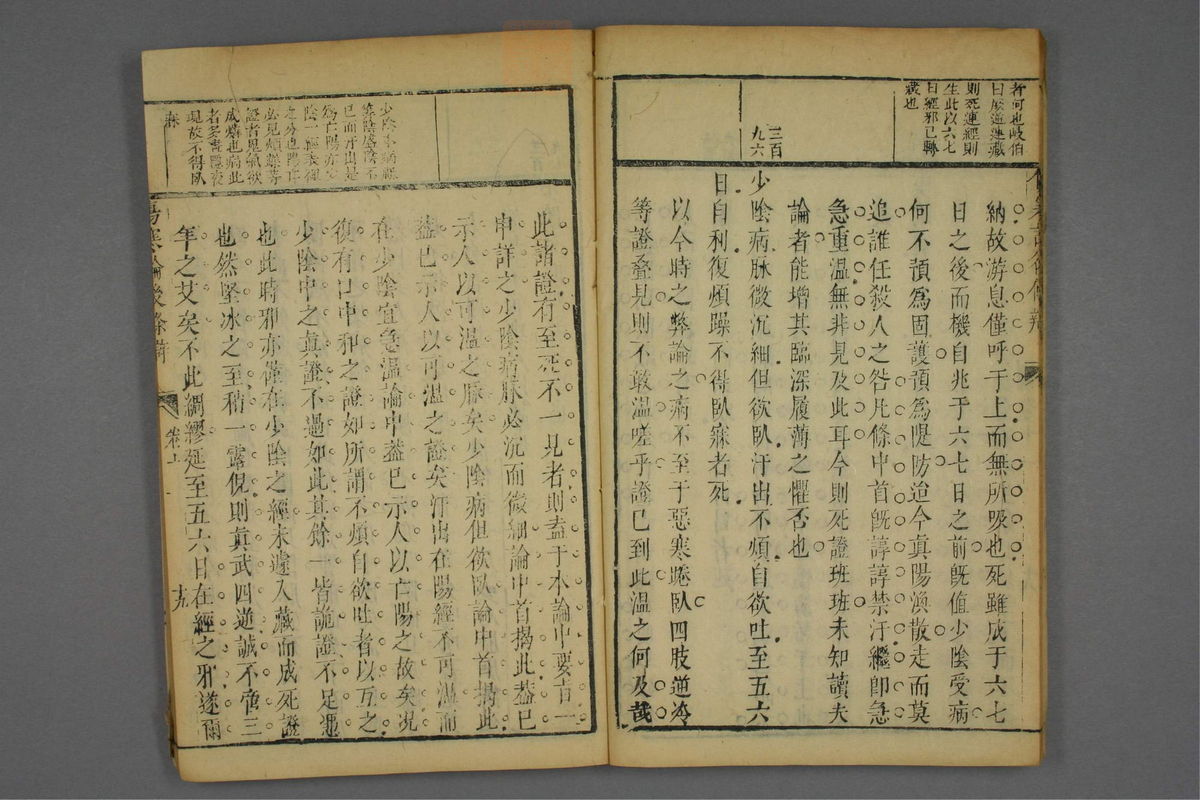 者何也岐伯
曰厥逆連藏
則死連經則
生此以六七
日經邪已轉
裁也
三百
九六
納故游息僅呼于上而無所吸也死雖成于六七
日之後而機自兆于六七日之前旣值少陰受病
何不預爲固護預爲隄防迨今眞陽渙散走而莫
追誰任殺人之咎凡條中首旣諄諄禁汗繼卽急
急重温無非見及此耳今則死證班班未知讀夫
論者能增其臨深履薄之懼否也
少陰病脉微沉細但欲臥汗出不煩自欲吐至五六
日自利復煩躁不得臥寐者死
以今時之弊論之病不至于惡寒踡臥四肢逆冷
等證叠見則不敢温嗟乎證已到此温之何及哉
少陰本病經
等陰盛陰不
已而汗出是
爲亡陽亦
陰一經表裡
必見煩躁
成燐也病此
者多書隱夜
現故不得臥
寐
此諸證有至死不一見者則盍于本論中要旨一
申詳之少陰病脉必沉而微細論中首揭此葢已
示人以可温之脉矣少陰病但欲臥論中首揭此
葢已示人以可温之證矣汗出在陽經不可温而
在少陰宜急温論中葢已示人以亡陽之故矣况
復有口中和之證如所謂不煩自欲吐者以互之
少陰中之眞證不過如此其餘一皆詭證不足慿
也此時邪亦僅在少陰之經未遽入藏而成死證
也然堅冰之至稍一露倪則眞武四逆誠不啻三
年之艾矣不此綢繆延至五六日在經之邪遂爾
傷寒論後條辨
卷十
十九